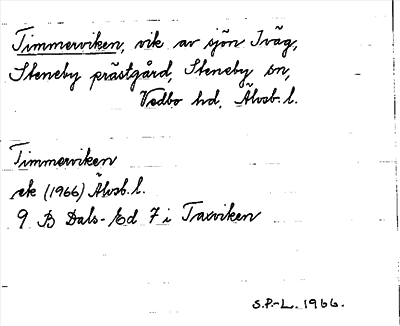 Timmerviken, vik av sjön Iväg,
Steneby prästgård, Steneby sn,
Vedbo hd, Älvsb. l.
Timmerviken
ek (1966) Älvsb. l.
9 B Dals-Ed 7 i Taxviken
S.P.-L. 1966.